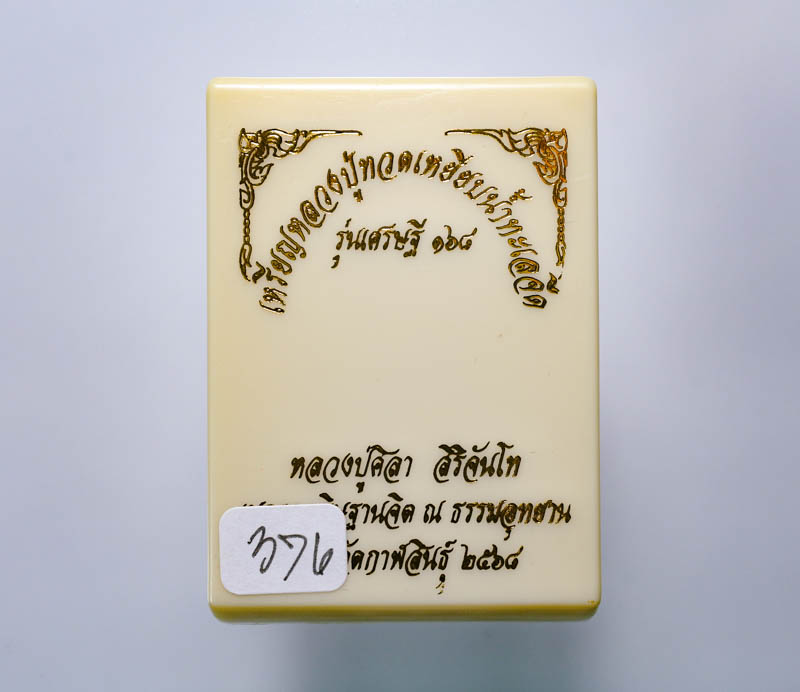 เหรียญหลวงปู่ทวดเหยียบน้ำทะเลจืด
รุ่นเศรษฐี ๑๖๘
หลวงปู่ศิลา สิริจันโท
ฐานจิต ณ ธรรมอุทยาน
กาฬสินธุ์ ๒๕๖๘
376